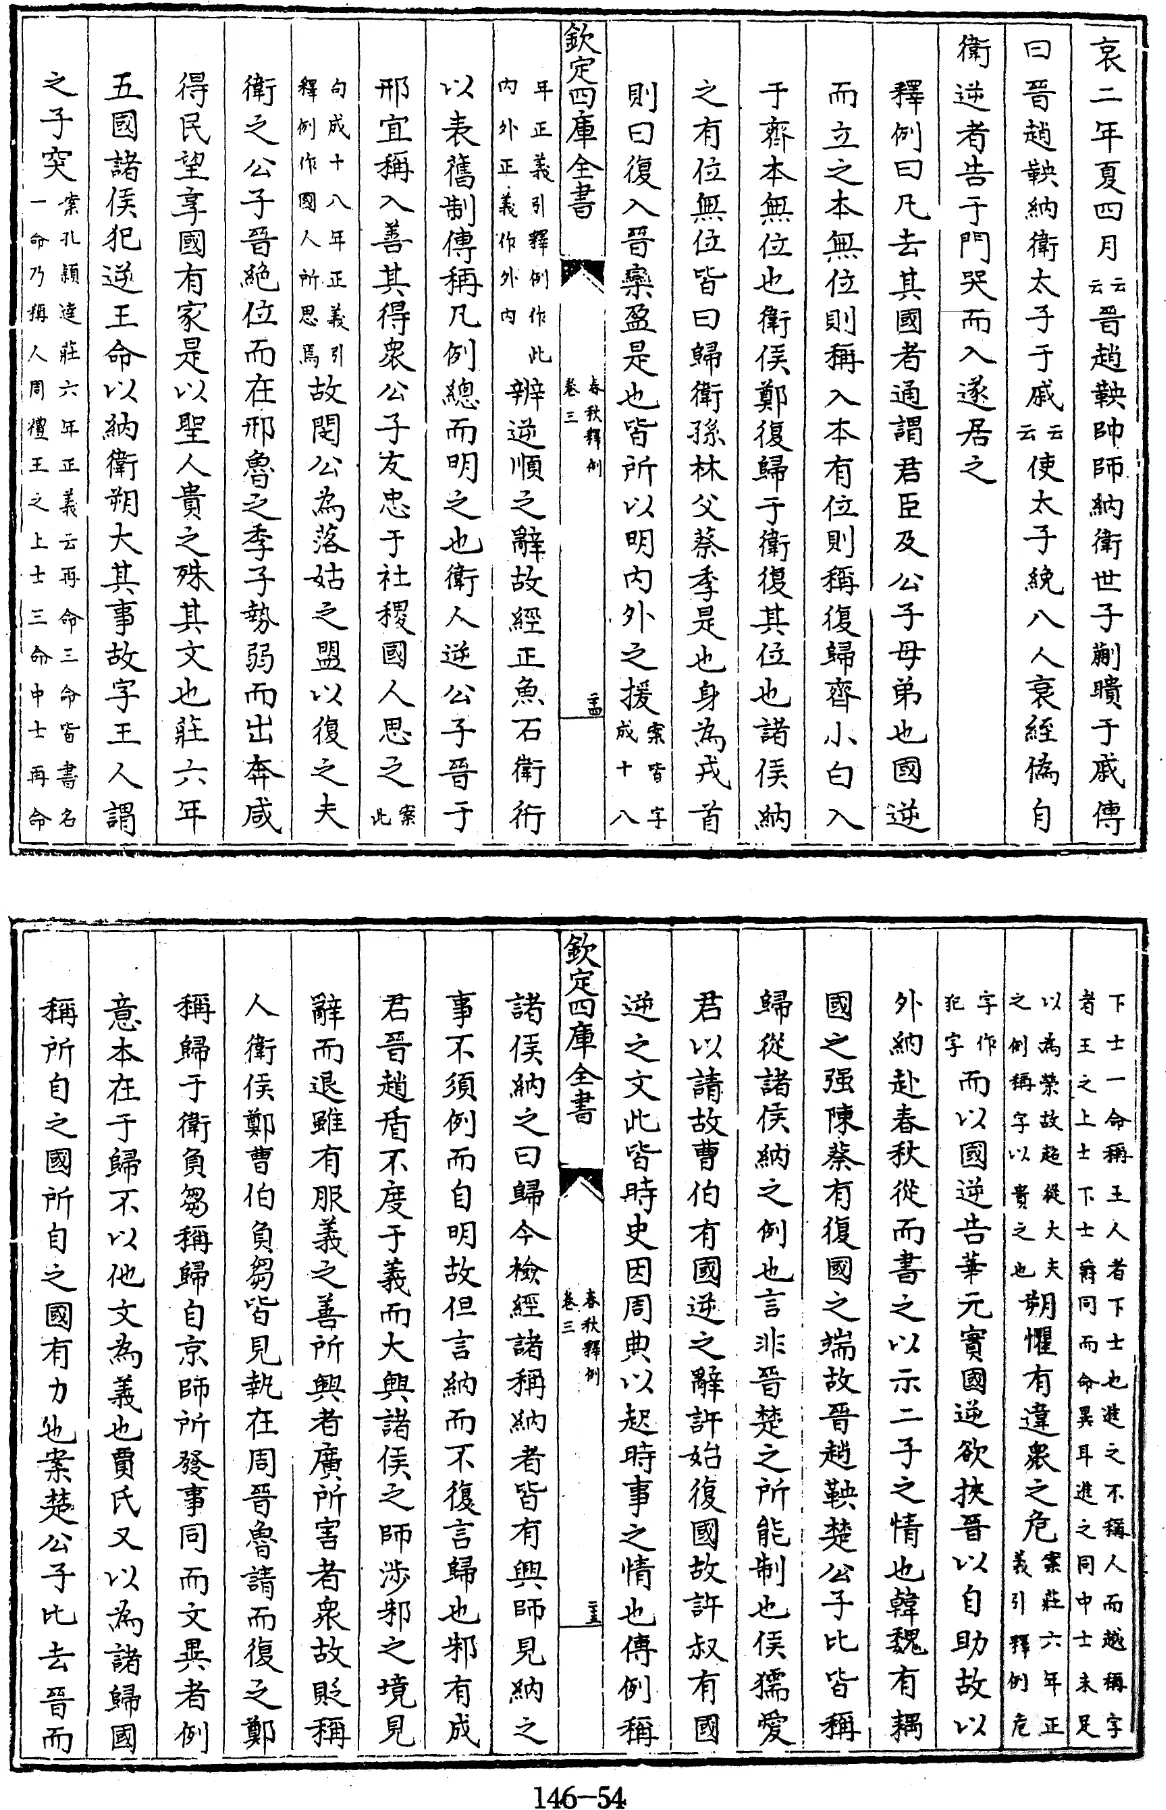 哀二年夏四月云云晉趙鞅帥師納衛世子蒯聵于戚傳
曰晉趙鞅納衛太子于戚云云使太子絻八人衰絰偽自
衛逆者告于門哭而入遂居之
釋例曰凡去其國者通謂君臣及公子母弟也國逆
而立之本無位則稱入本有位則稱復歸齊小白入
于齊本無位也衛侯鄭復歸于衛復其位也諸侯納
之有位無位皆曰歸衛孫林父蔡季是也身為戎首
則曰復入晉欒盈是也皆所以明內外之援案皆字成十八
欽定四庫全書 春秋釋例卷三 二十四
年正義引釋例作此內外正義作外內辨逆順之辭故經正魚石衛衎
以表舊制傳稱凡例總而明之也衛人逆公子晉于
邢宜稱入善其得衆公子友忠于社稷國人思之案此
句成十八年正義引釋例作國人所思焉故閔公為落姑之盟以復之夫
衛之公子晉絶位而在邢魯之季子勢弱而出奔咸
得民望享國有家是以聖人貴之殊其文也莊六年
五國諸侯犯逆王命以納衛朔大其事故字王人謂
之子突案孔穎達莊六年正義云再命三命皆書名一命乃稱人周禮王之上士三命中士再命
下士一命稱王人者下士也進之不稱人而越稱字者王之上士下士爵同而命異耳進之同中士未足
以為榮故超從大夫之例稱字以貴之也朔懼有違衆之危案莊六年正義引釋例危
字作犯字而以國逆告華元實國逆欲挾晉以自助故以
外納赴春秋從而書之以示二子之情也韓魏有耦
國之强陳蔡有復國之端故晉趙鞅楚公子比皆稱
歸從諸侯納之例也言非晉楚之所能制也侯獳愛
君以請故曹伯有國逆之辭許始復國故許叔有國
逆之文此皆時史因周典以起時事之情也傳例稱
欽定四庫全書 春秋釋例卷三 二十五
諸侯納之曰歸今檢經諸稱納者皆有興師見納之
事不須例而自明故但言納而不復言歸也邾有成
君晉趙盾不度于義而大興諸侯之師涉邾之境見
辭而退雖有服義之善所興者廣所害者衆故貶稱
人衛侯鄭曹伯負芻皆見執在周晉魯請而復之鄭
稱歸于衛負芻稱歸自京師所發事同而文異者例
意本在于歸不以他文為義也賈氏又以為諸歸國
稱所自之國所自之國有力也案楚公子比去晉而
146-54